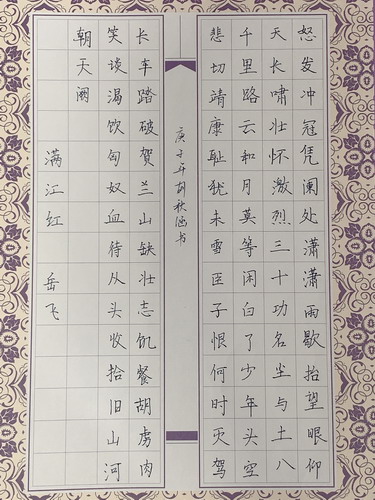 怒发冲冠凭阑处潇潇雨歇抬望眼仰
天长啸壮怀激烈三十功名尘与土八
千里路云和月莫等闲白了少年头空
悲切靖康耻犹未雪臣子恨何时灭驾
庚子年胡秋涵书
长车踏破贺兰山缺壮志饥餐胡虏肉
笑谈渴饮匈奴血待从头收拾旧山河
朝天阙
满江红 岳飞